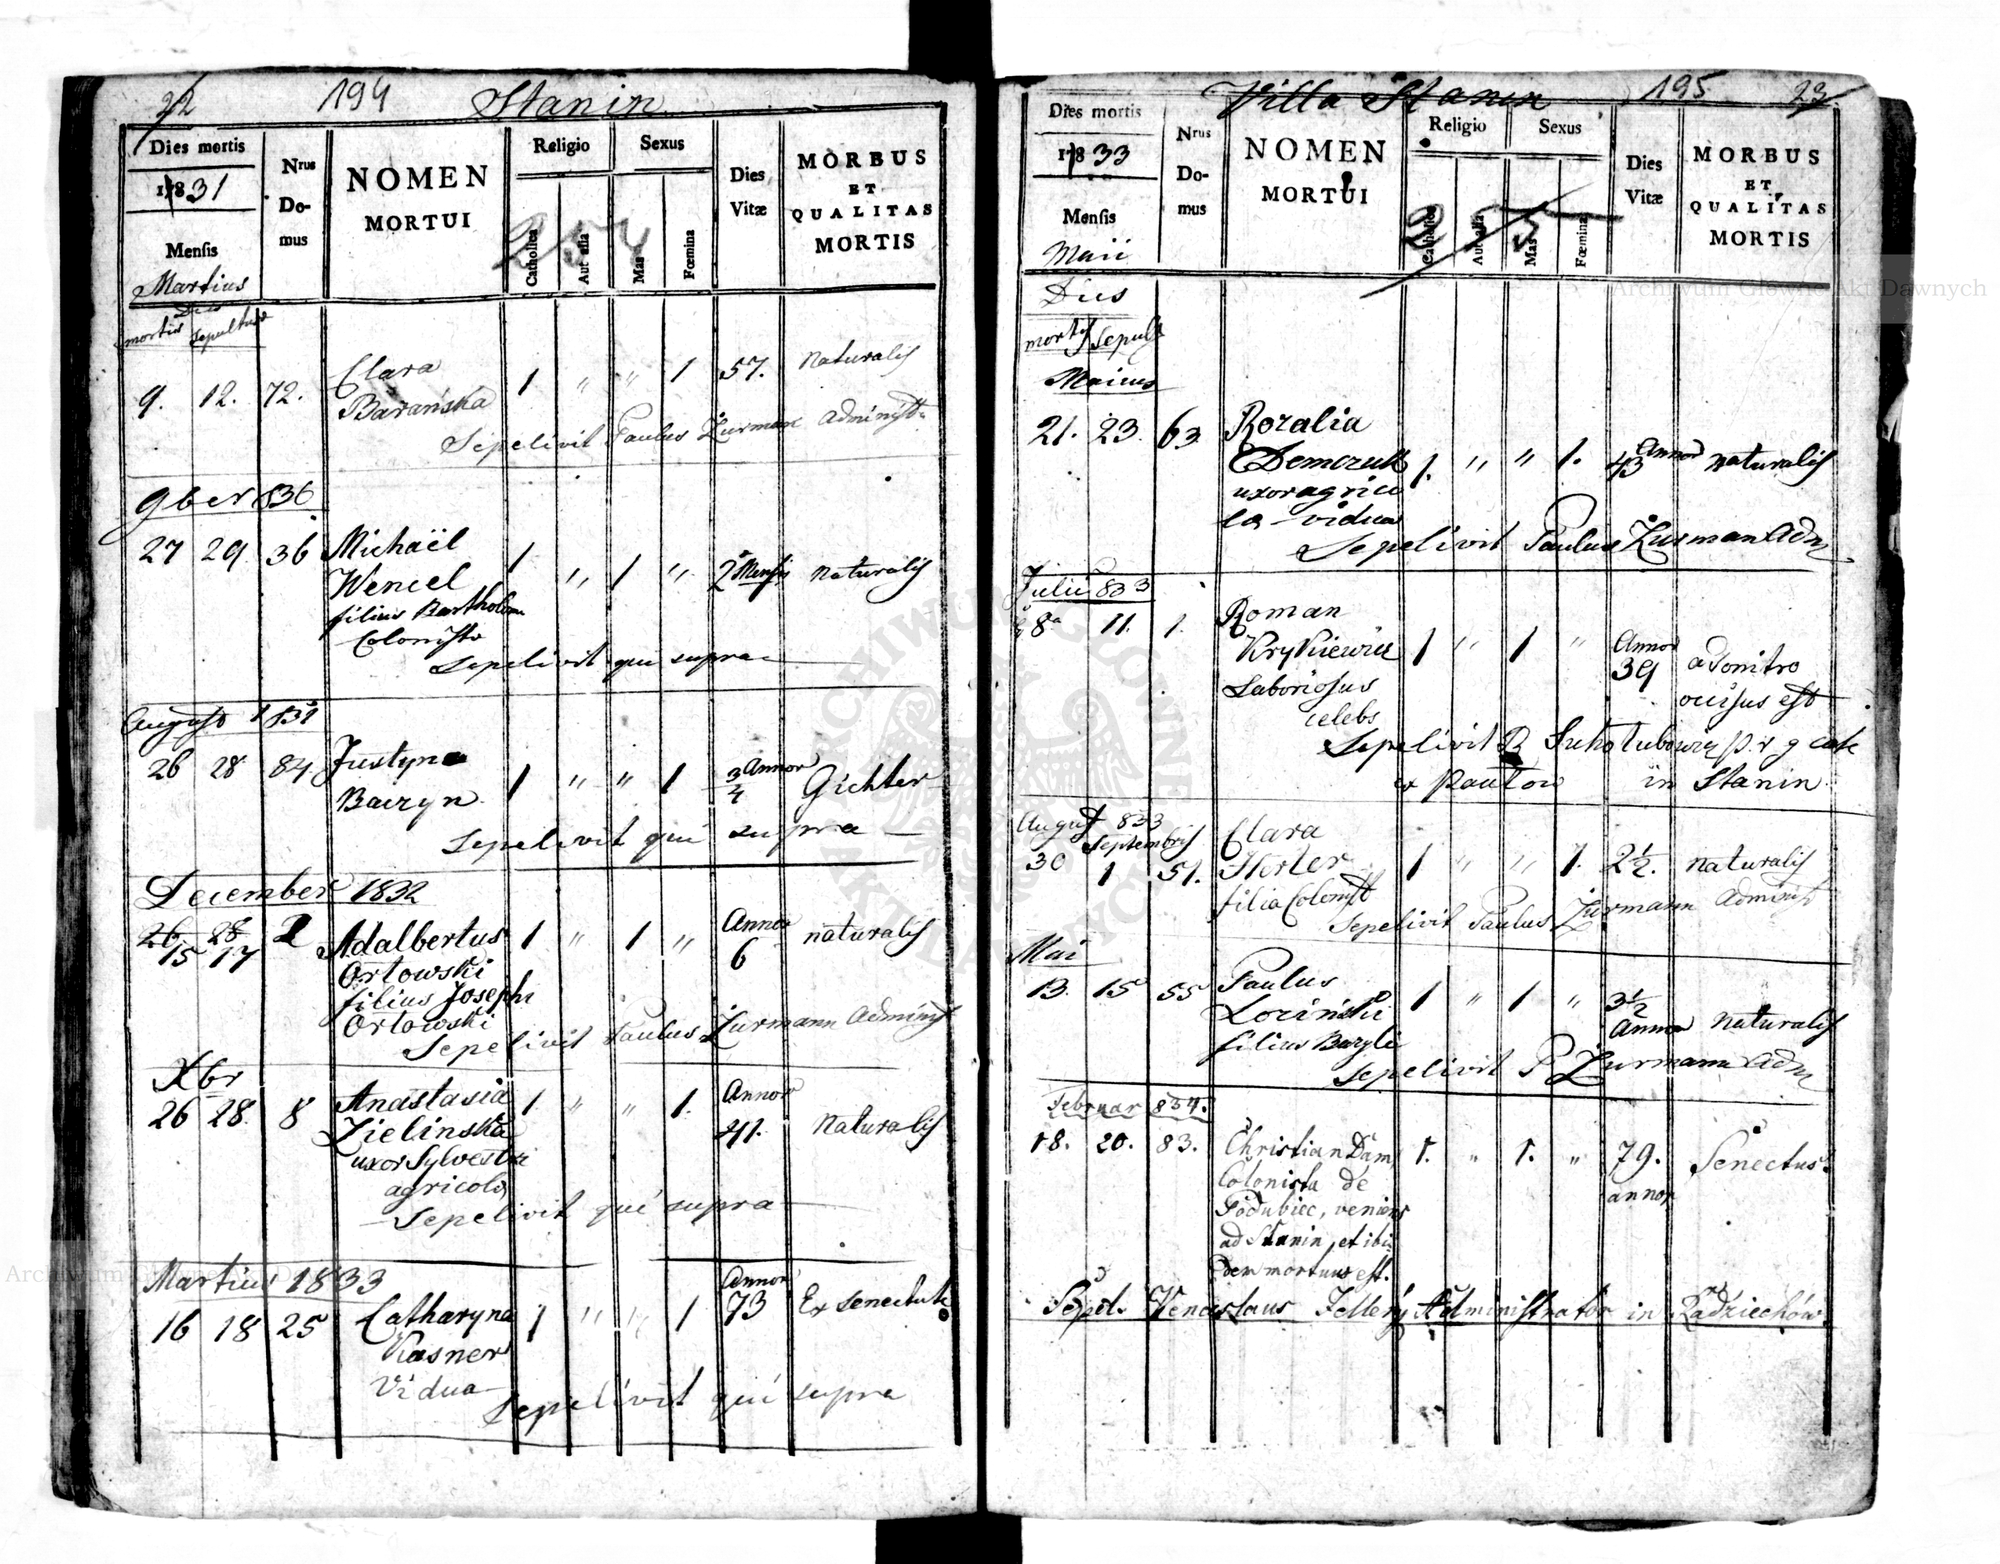 22 194 Stanin
Dies mortis
1831
Mensis
Martius
Nrus
Do-
mus
NOMEN
MORTUI
Religio
Catholica
Aut alia
Sexus
Mas
Fœmina
Dies
Vitæ
MORBUS
ET
QUALITAS
MORTIS
254
Dies
mortis
9. 12. 72. Clara 1 " " 1 57. naturalis
Barańska
Sepelivit Paulus Zurmann Administ.
9ber 836
27 29 36 Michaël 1 " 1 " 2 Mensis naturalis
Wencel
filius Bartholom
Colonista
Sepelivit qui supra
August 1831
26 28 84 Justyna 1 " " 1 3/4 Annor Gichter
Baczyn
Sepelivit qui supra
December 1832
26 28
15 17 2 Adalbertus 1 " 1 " Annor 6 naturalis
Orłowski
filius Josephi
Orłowski
Sepelivit Paulus Zurmann Administ
Xbr
26 28 8 Anastasia 1. " " 1. Annor 41. naturalis
Zielinska
uxor Sylvestri
agricola
Sepelivit qui supra
Martius 1833
16 18 25 Catharyna 1 " " 1 Annor 73 Ex senectute
Kasner
Vidua
Sepelivit qui supra
Villa Stanin 195 23
Dies mortis
1833
Mensis
Maii
Nrus
Do-
mus
NOMEN
MORTUI
Religio
Catholica
Aut alia
Sexus
Mas
Fœmina
Dies
Vitæ
MORBUS
ET
QUALITAS
MORTIS
255
Dies
mortis sepult
21. 23. 63 Rozalia
Demczuk 1. " " 1. 43 Annor naturalis
uxor agrico
la vidua
Sepelivit Paulus Zurman Adm
Julii 833
8a 11. 1. Roman
Krykiewicz 1 " 1 " Annor 39 a tonitro
Laboriosus occisus est
celebs
Sepelivit
in Stanin
August 833
Septembris
30 1 51. Clara 1 " " 1. 2½. naturalis
Herter
filia Colonist
Sepelivit Paulus Zurmann Administ
Mai
13. 15 55 Paulus 1 " 1 " 3½ Annor naturalis
Łociński
filius Bazyli
Sepelivit P Zurmann Adm
Februar 834.
18. 20. 83. Christian Dam, 1. " 1. " 79. annor Senectus.
Colonista de
Podubiec, veniens
ad Stanin, et ibi
dem mortuus est.
Sepel. Venceslaus Jellený Administrator in Radziechów.
Archiwum Główne Akt Dawnych
Archiwum Główne Akt Dawnych
ARCHIWUM GŁÓWNE AKT DAWNYCH